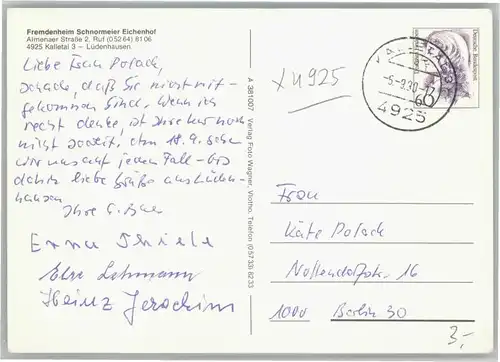 Fremdenheim Schnormeier Eichenhof
Almenaer Straße 2, Ruf (052 64) 81 06
4925 Kalletal 3 – Lüdenhausen
Liebe Frau Polack,
schade, daß Sie nicht mit-
gekommen sind. Wenn ich
recht denke, ist
nicht soweit. Am 18.9. sehen
wir uns auf jeden Fall – bis
dahin liebe Grüße aus Lüden-
hausen
Ihre
Erna Thiele
Else Lehmann
Heinz Jerochim
A 38 1007 Verlag Foto Wagner, Vlotho, Telefon (05733) 8233
x4925
KALLETAL 3
-5.-9.90-17
4925
Deutsche Bundespost
60
Frau
Käte Polack
Nollendorfstr. 16
1000 Berlin 30
3,-